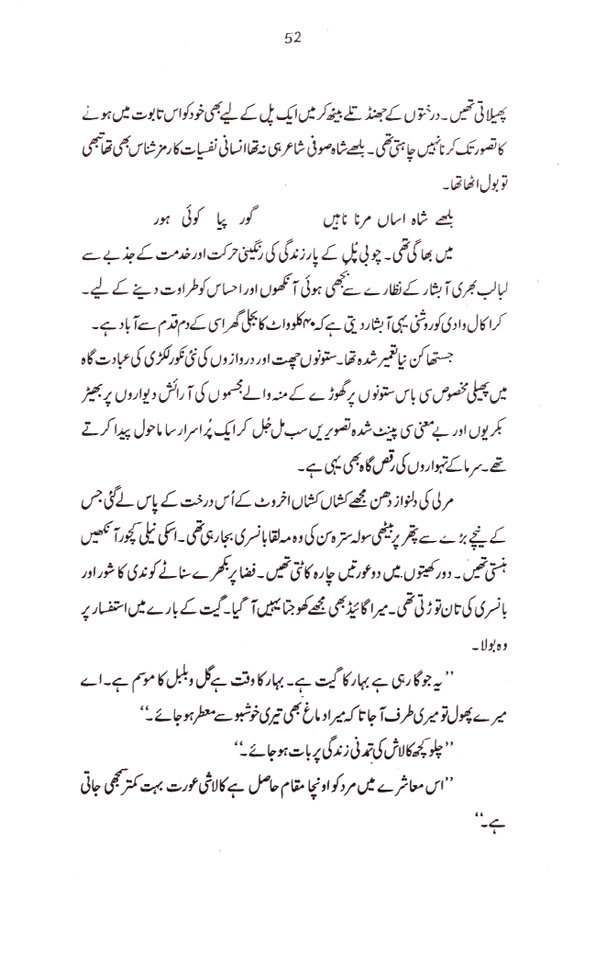 52
پھیلاتی تھیں۔ درختوں کے جھنڈ تلے بیٹھ کر میں ایک پل کے لیے بھی خود کو اس تابوت میں ہونے
کا تصور تک کرنا نہیں چاہتی تھی۔ بلھے شاہ صوفی شاعر ہی نہ تھا انسانی نفسیات کا رمز شناس بھی تھا تبھی
تو بول اٹھا تھا۔
بلھے شاہ اساں مرنا ناہیں گور پیا کوئی ہور
میں بھاگی تھی۔ چوبی پُل کے پار زندگی کی رنگینی حرکت اور خدمت کے جذبے سے
لبالب بھری آبشار کے نظارے سے بجھی ہوئی آنکھوں اور احساس کو طراوت دینے کے لیے۔
کراکال وادی کو روشنی یہی آبشار دیتی ہے کہ ۴۰ کلوواٹ کا بجلی گھر اسی کے دم قدم سے آباد ہے۔
جستھاکن نیا تعمیر شدہ تھا۔ ستونوں چھت اور دروازوں کی نئی نکور لکڑی کی عبادت گاہ
میں پھیلی مخصوص سی باس ستونوں پر گھوڑے کے منہ والے مجسموں کی آرائش دیواروں پر بھیڑ
بکریوں اور بے معنی سی پینٹ شدہ تصویریں سب مل جُل کر ایک پُر اسرار سا ماحول پیدا کرتے
تھے۔ سرما کے تہواروں کی رقص گاہ بھی یہی ہے۔
مرلی کی دلنواز دھن مجھے کشاں کشاں اخروٹ کے اُس درخت کے پاس لے گئی جس
کے نیچے بڑے سے پتھر پر بیٹھی سولہ سترہ سن کی وہ مہ لقا بانسری بجا رہی تھی۔ اسکی نیلی کچور آنکھیں
ہنستی تھیں۔ دور کھیتوں میں دو عورتیں چارہ کاٹتی تھیں۔ فضا پر بکھرے سناٹے کو ندی کا شور اور
بانسری کی تان توڑتی تھی۔ میرا گائیڈ بھی مجھے کھوجتا یہیں آ گیا۔ گیت کے بارے میں استفسار پر
وہ بولا۔
”یہ جو گا رہی ہے بہار کا گیت ہے۔ بہار کا وقت ہے گل و بلبل کا موسم ہے۔ اے
میرے پھول تو میری طرف آ جا تا کہ میرا دماغ بھی تیری خوشبو سے معطر ہو جائے۔“
”چلو کچھ کالاش کی تمدنی زندگی پر بات ہو جائے۔“
”اس معاشرے میں مرد کو اونچا مقام حاصل ہے کالاشی عورت بہت کمتر سمجھی جاتی
ہے۔“